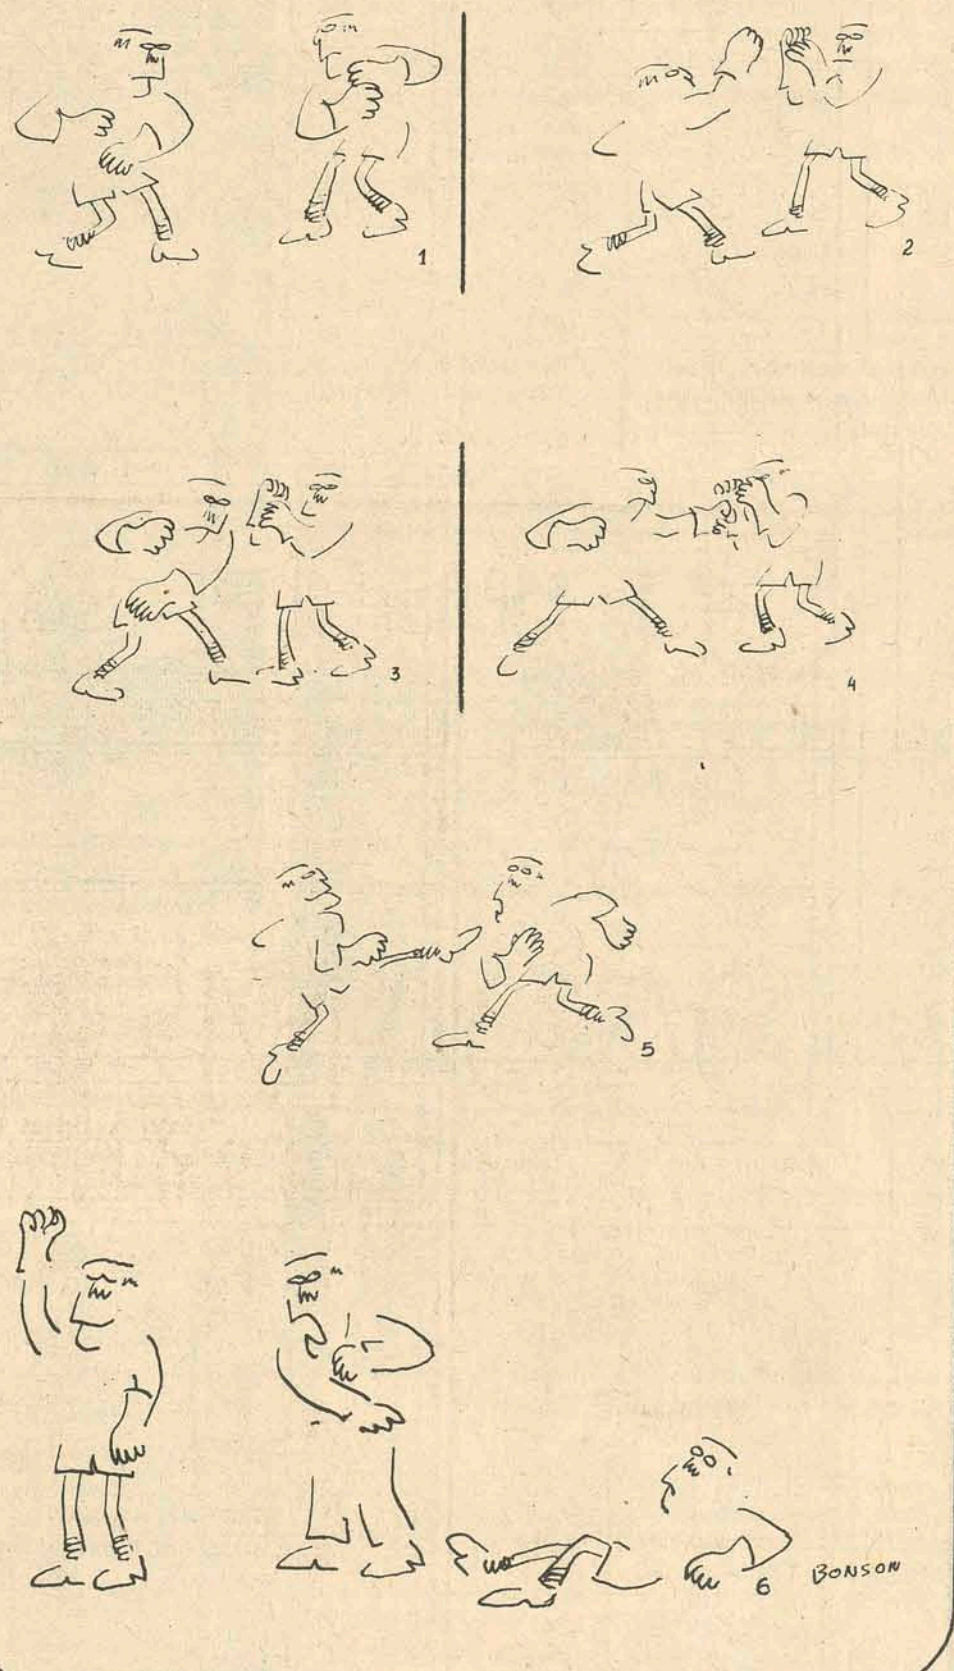 1
2
3
4
5
6
BONSON